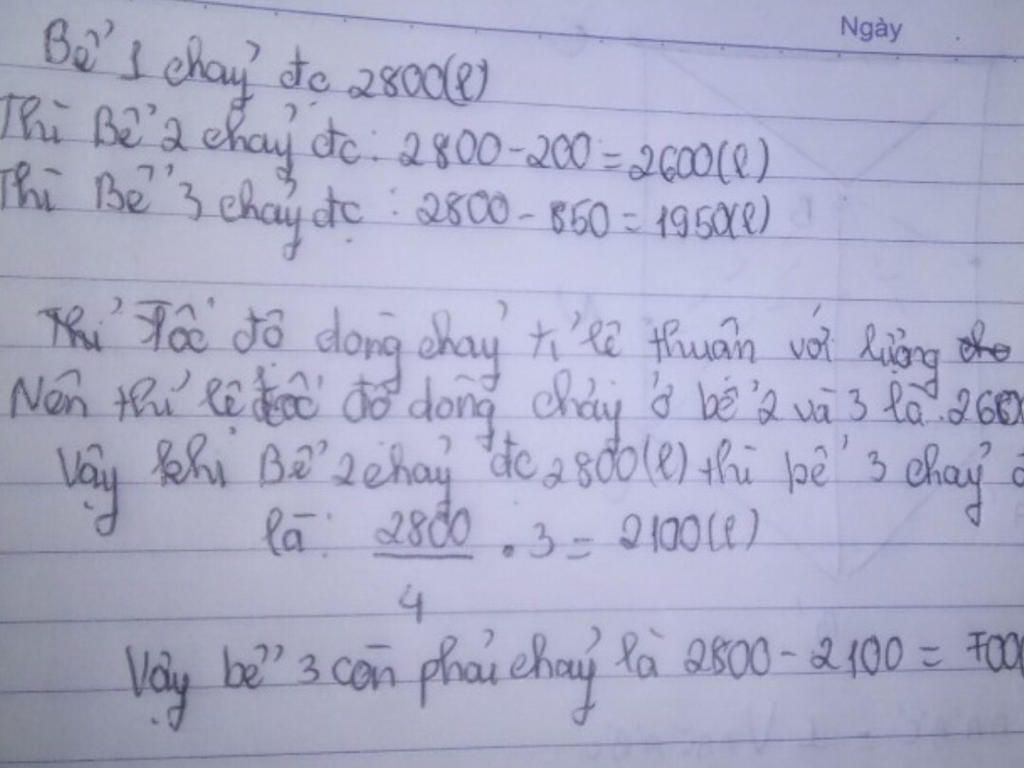 Ngày
Bể 1 chảy đc 2800(l)
Thì Bể 2 chảy đc: 2800 - 200 = 2600(l)
Thì Bể 3 chảy đc: 2800 - 850 = 1950(l)
Thì Tốc độ dòng chảy tỉ lệ thuân với lượng
Nên thỉ lệ tốc độ dòng chảy ở bể 2 và 3 là 260
Vậy khi Bể 2 chảy đc 2800(l) thì bể 3 chảy
là: 2800 . 3 = 2100(l)
4
Vậy bể 3 còn phải chảy là 2800 - 2100 = 700(